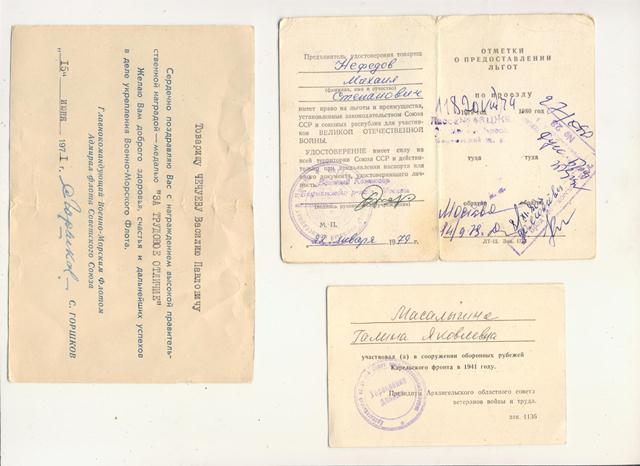 Товарищу ЧЕЧУЕВУ Василию Павловичу
Сердечно поздравляю Вас с награждением высокой правитель-
ственной наградой — медалью "ЗА ТРУДОВОЕ ОТЛИЧИЕ"
Желаю Вам доброго здоровья, счастья и дальнейших успехов
в деле укрепления Военно-Морского Флота.
Главнокомандующий Военно-Морским Флотом
Адмирал Флота Советского Союза
С. ГОРШКОВ
„15" июня 1971 г.
Предъявитель удостоверения товарищ
Нефедов
Михаил
Степанович
(фамилия, имя и отчество)
имеет право на льготы и преимущества,
установленные законодательством Союза
ССР и союзных республик для участни-
ков ВЕЛИКОЙ ОТЕЧЕСТВЕННОЙ
ВОЙНЫ.
УДОСТОВЕРЕНИЕ имеет силу на
всей территории Союза ССР и действи-
тельно при предъявлении паспорта или
другого документа, удостоверяющего лич-
ность.
М. П.
22 января 1979 г.
ОТМЕТКИ
О ПРЕДОСТАВЛЕНИИ
ЛЬГОТ
по проезду
1980 год
туда
туда
обратно
Москва
ЛТ-12. Зак.
Масалыгина
Галина Яковлевна
участвовал (а) в сооружении оборонных рубежей
Карельского фронта в 1941 году.
Президиум Архангельского областного совета
ветеранов войны и труда.
зак. 1136